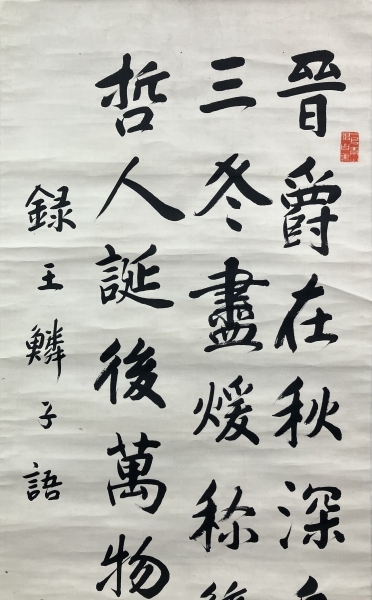 晉爵在秋深
三冬盡煖称
哲人誕後萬物
録王鱗子語